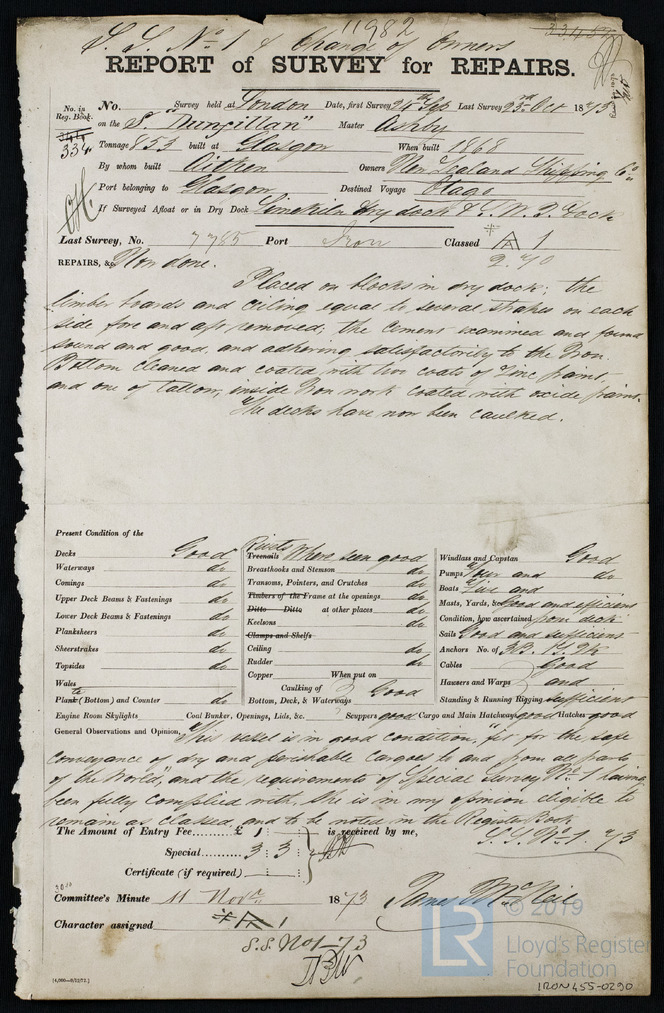 11982
S. S. No. 1 & Change of Owners
REPORT of SURVEY for REPAIRS.
No. in Reg. Book. No. Survey held at London Date, first Survey 24th Sep Last Survey 23rd Oct 1873
344 on the S. Master Ashby
334 Tonnage 853 built at Glasgow When built 1868
By whom built Aitken Owners New Zealand Shipping Co
Port belonging to Glasgow Destined Voyage Otago
If Surveyed Afloat or in Dry Dock Limekiln Dry dock & S. W. I. Dock
Last Survey, No. 7785 Port Iron Classed A 1
2. 70
REPAIRS, &c. Now done.
Placed on blocks in dry dock; the
limber boards and ceiling equal to several strakes on each
side fore and aft removed, the cement examined and found
sound and good, and adhering satisfactorily to the Iron.
Bottom cleaned and coated with two coats of Zinc paint
and one of tallow, inside Iron work coated with oxide paint.
The decks have now been caulked.
Present Condition of the
Decks Good
Waterways do
Comings do
Upper Deck Beams & Fastenings do
Lower Deck Beams & Fastenings do
Planksheers do
Sheerstrakes do
Topsides do
Wales
Plank (Bottom) and Counter do
Rivets
Treenails Where seen good
Breasthooks and Stemson do
Transoms, Pointers, and Crutches do
Timbers of the Frame at the openings do
Ditto Ditto at other places do
Keelsons do
Clamps and Shelfs
Ceiling do
Rudder do
Copper When put on
Caulking of
Bottom, Deck, & Waterways Good
Windlass and Capstan Good
Pumps Four and do
Boats Five and
Masts, Yards, &c. Good and efficient
Condition, how ascertained from deck
Sails Good and sufficient
Anchors No. of 3B. 1S. 2K
Cables Good
Hawsers and Warps and
Standing & Running Rigging sufficient
Engine Room Skylights Coal Bunker, Openings, Lids, &c. Scuppers good Cargo and Main Hatchways good Hatches good
General Observations and Opinion, This vessel is in good condition, "fit for the safe
conveyance of dry and perishable cargoes to and from all parts
of the World," and the requirements of Special Survey No. 1 having
been fully complied with, she is in my opinion eligible to
remain as classed, and to be noted in the Register Book
S.S. No. 1. 73
The Amount of Entry Fee......... £ 1 : : is received by me,
Special......... 3 : 3 :
Certificate (if required)......... : :
Committee's Minute 11 Novr 1873 James McNeil
Character assigned A 1
S.S. No 1 - 73
[4,000—9/12/72.]
LR © 2019
Lloyd's Register
Foundation
IRON455-0290